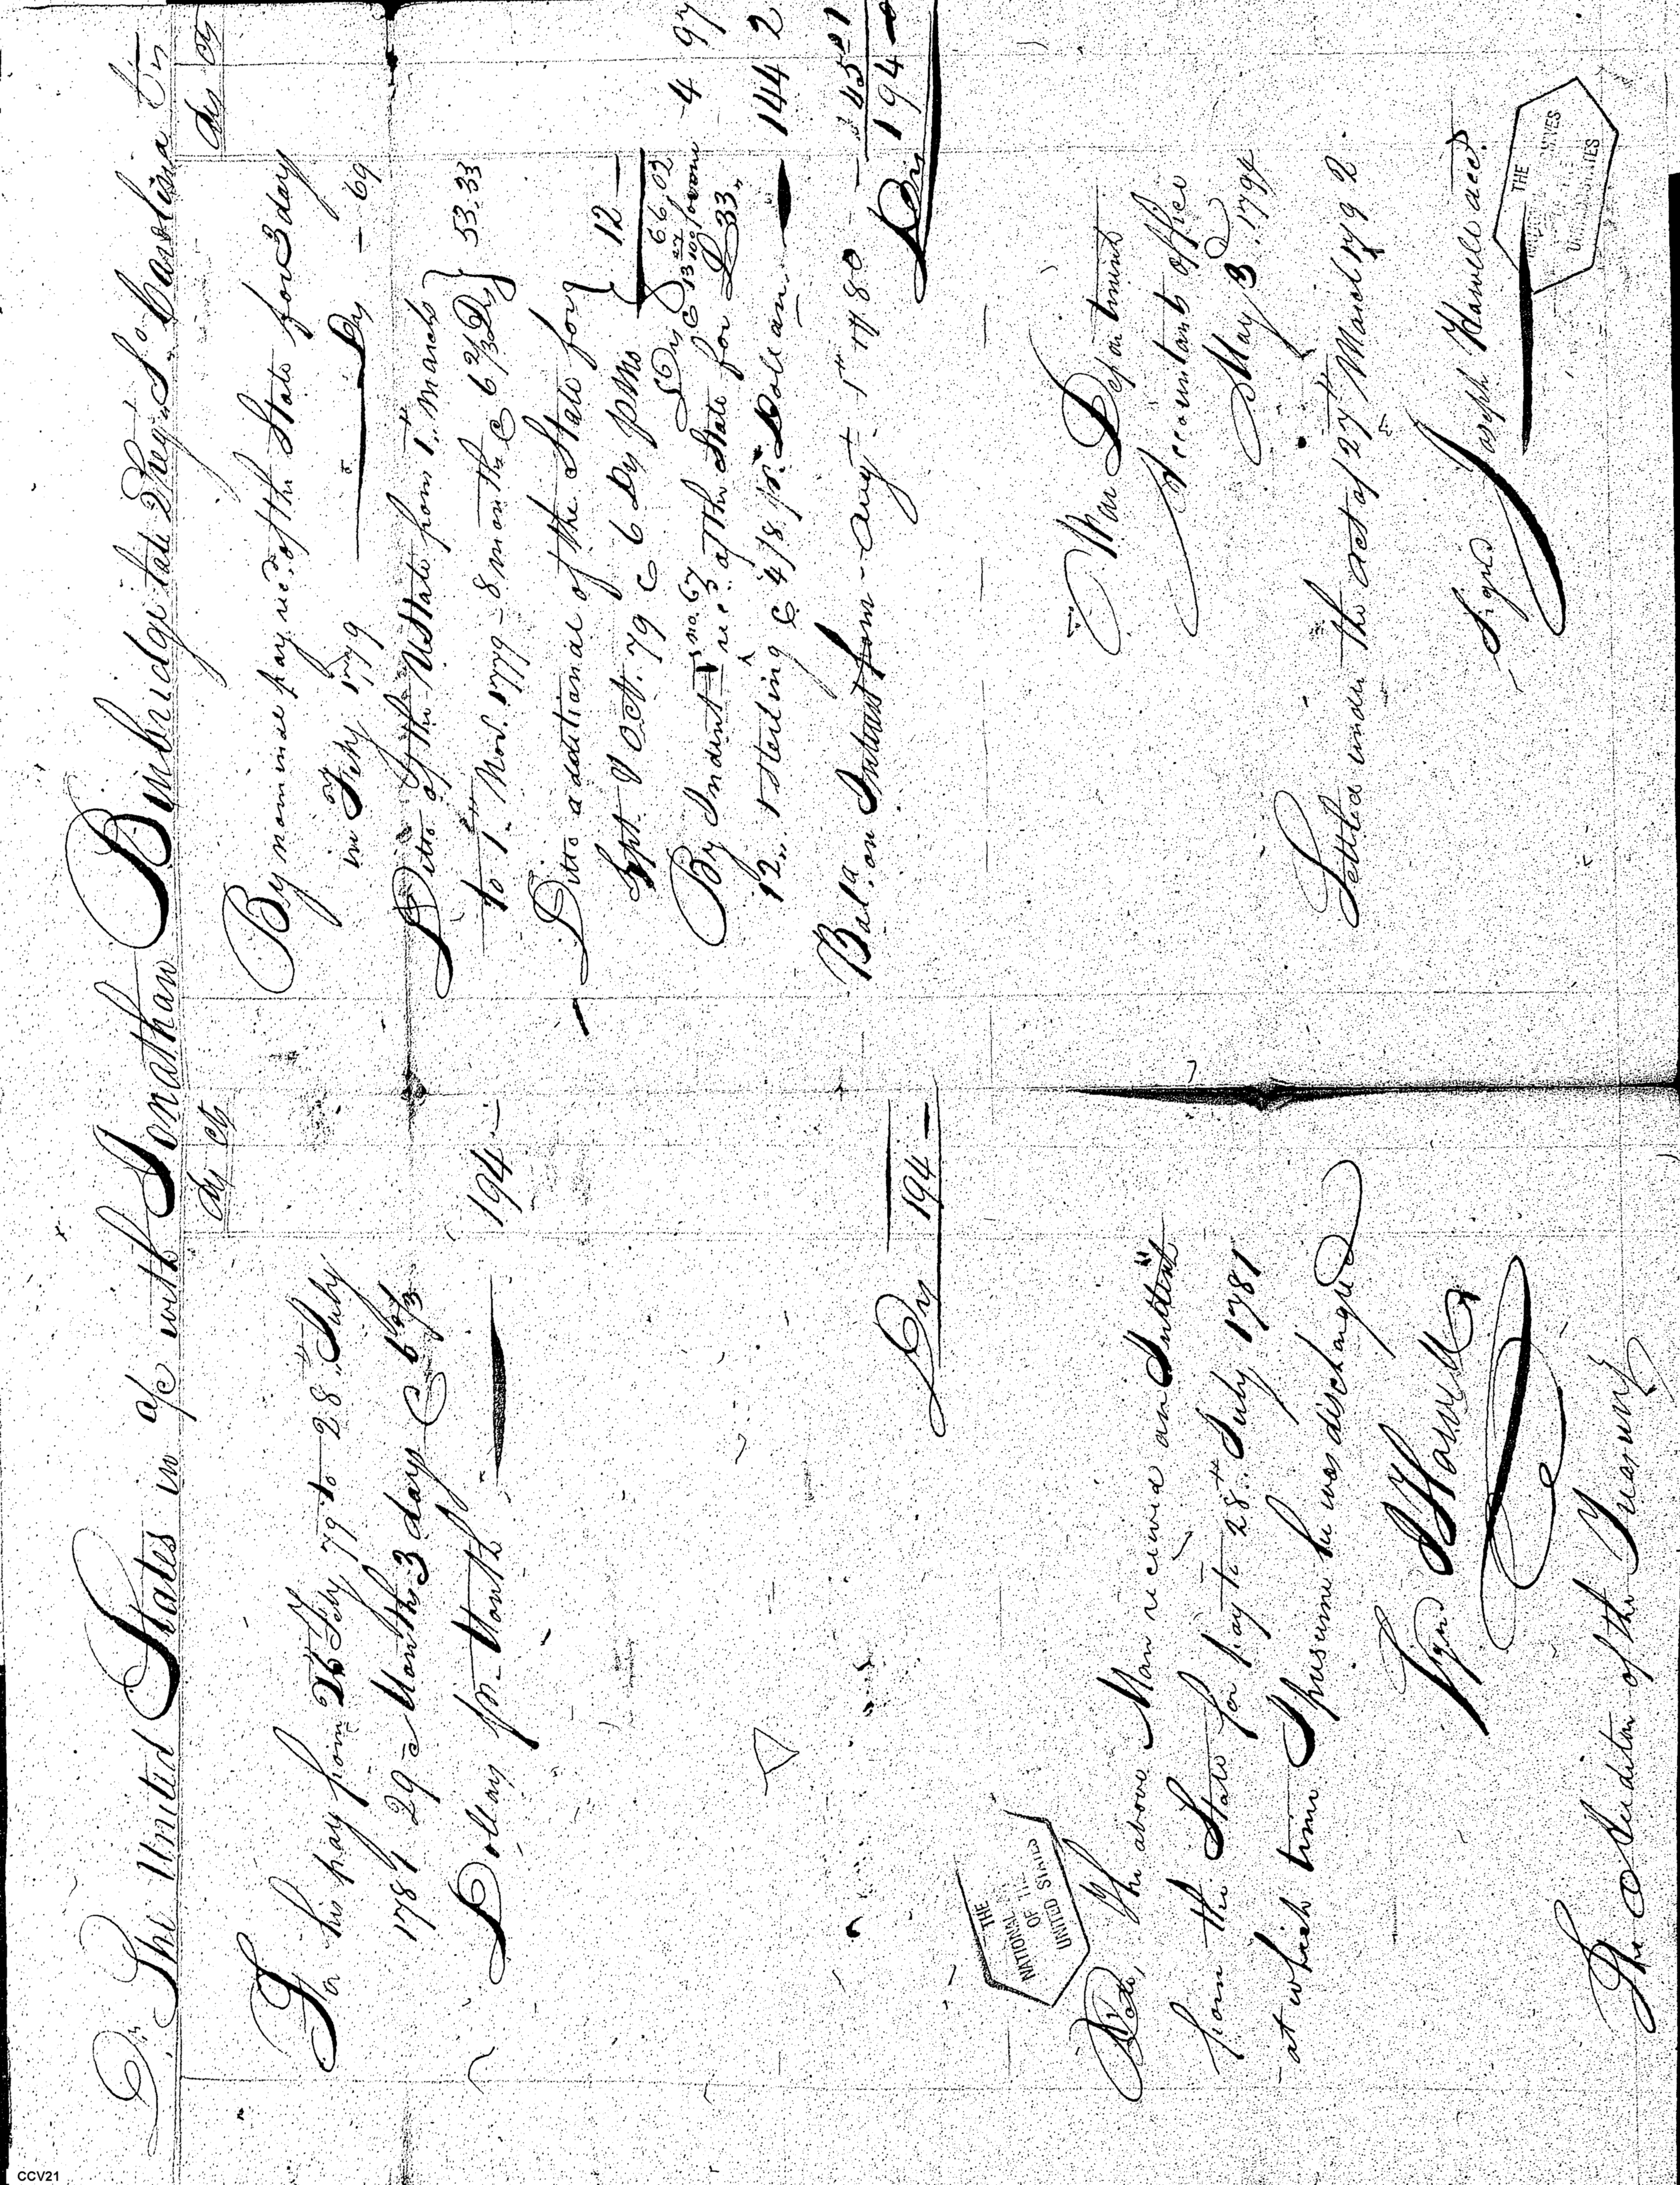 Dr. The United States in a/c with Jonathan Bimbridge late 2 Reg. So. Carolina Cr
Ds cts
For his pay from 26th Feby 79 to 28th July
1781 29 Months 3 days @ 6 2/3
Dollars pr. Month 194 -
Ds 194 -
Note, The above Man received an Indent
from the State for pay to 28th July 1781
at which time I presume he was discharged
Signd J Howell
The Auditor of the Treasury
Ds cts
By nominal pay recd. of the State for 3 day
in Feby 1779 Ds - 69
Ditto of the UState from 1st March
to 1st Nov. 1779 - 8 months @ 6 2/3 Ds } 53.33
Ditto additional of the State for
Sept. & Oct. 79 @ 6 Ds p Mo } 12 -
Ds 66.02
@ 13 27/100 for one 4 97
By Indent no. 67 recd. of the State for £33,,
12,, 1 Sterling @ 4/8 pr. Dollar 144 2
Bala. on Interest from Augt. 1st 1780 - 45 01
Ds 194 -
War Department
Accountants office
May 3. 1794
Settled under the act of 27th March 1792
Signd Joseph Howell acct.
THE
NATIONAL
OF THE
UNITED STATES
THE
CCV21